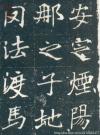 安寧煙陽
那之子地
司法渡馬